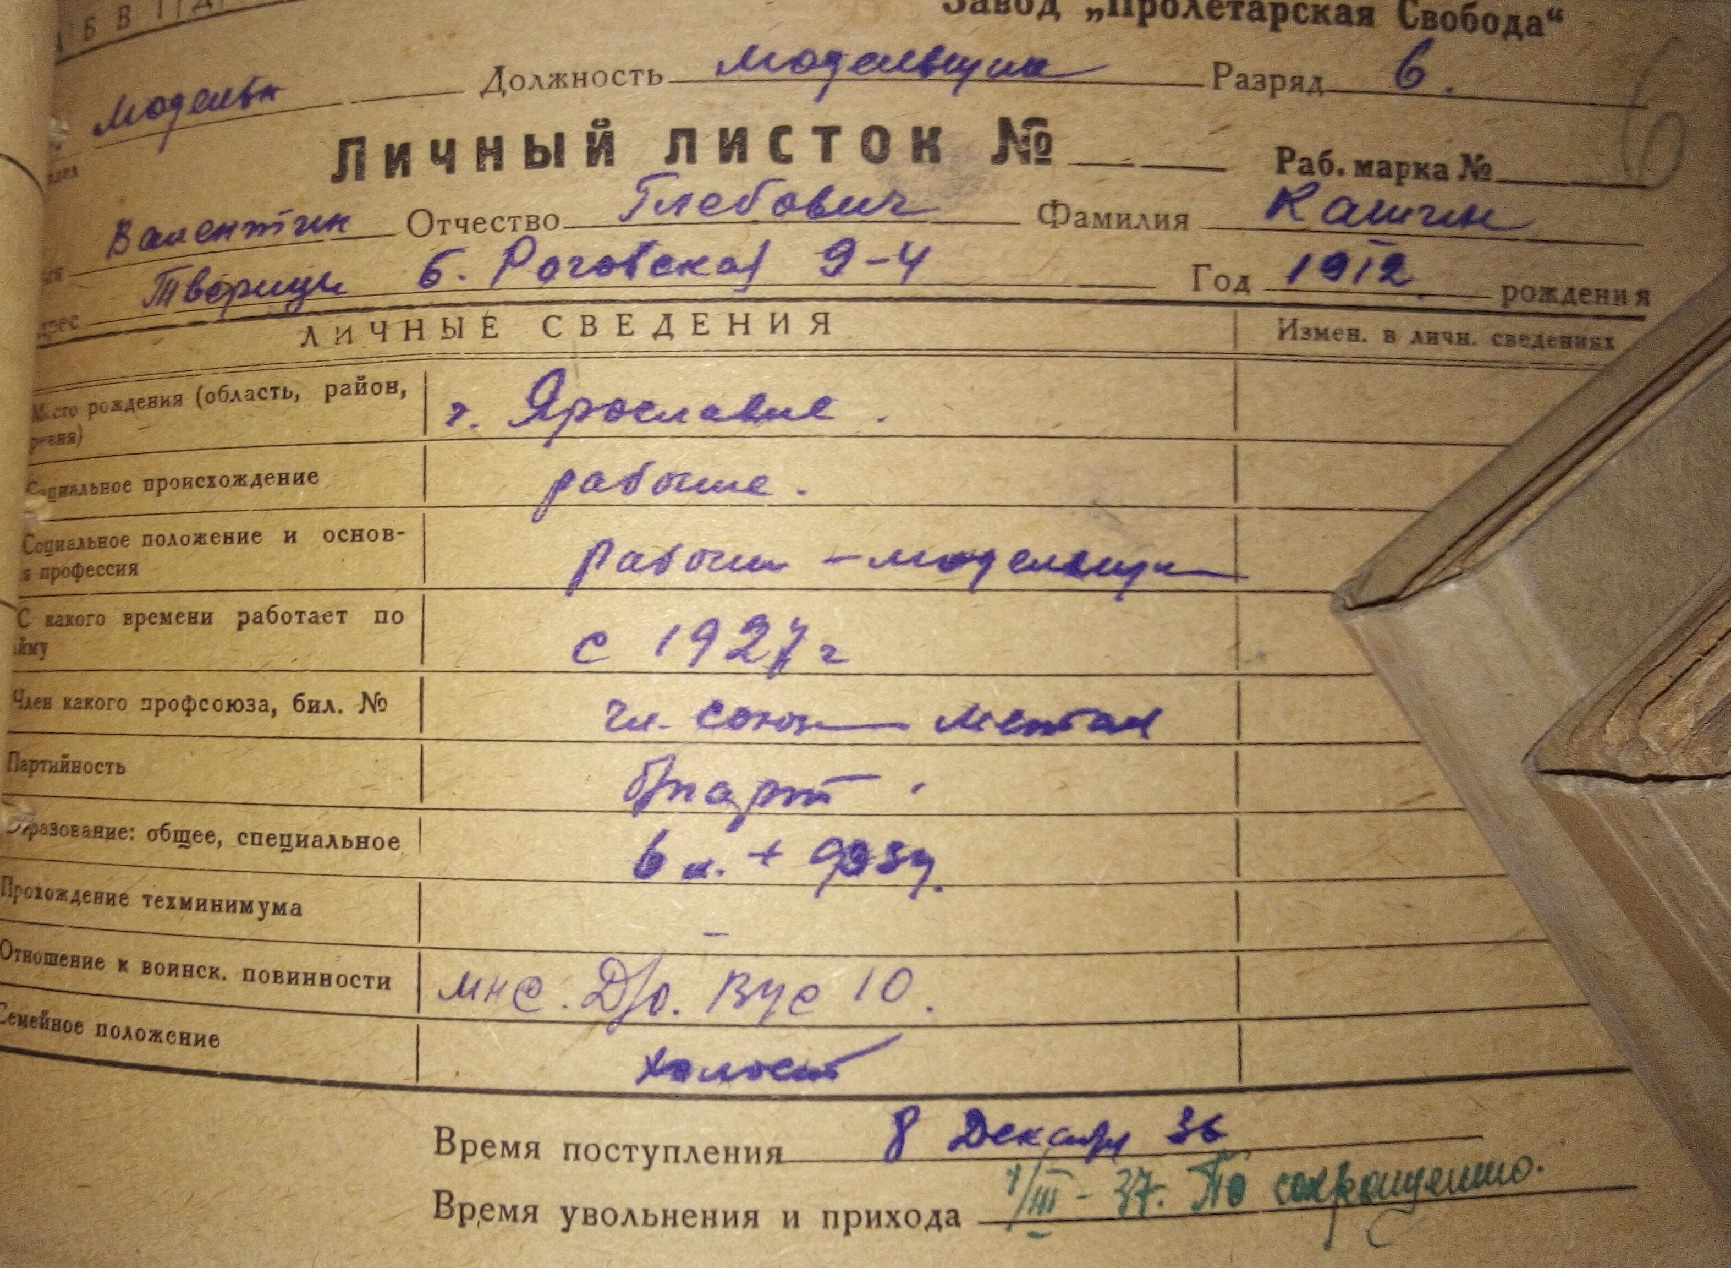 А Б В Г Д
Завод „Пролетарская Свобода“
Модельн Должность модельщик Разряд 6.
6
Личный листок № Раб. марка №
Валентин Отчество Глебович Фамилия Кашин
Творицы Б. Роговская 9-4 Год 1912 рождения
ЛИЧНЫЕ СВЕДЕНИЯ Измен. в личн. сведениях
Место рождения (область, район, г. Ярославле.
ревня)
Социальное происхождение рабочие.
Социальное положение и основ- рабочий - модельщик
я профессия
С какого времени работает по с 1927 г
йму
Член какого профсоюза, бил. № чл. союза метал
Партийность б/парт
Образование: общее, специальное 6 кл. + ФЗУ.
Прохождение техминимума -
Отношение к воинск. повинности мнс. Д/о. Вус 10.
Семейное положение холост
Время поступления 8 Декабря 36
Время увольнения и прихода /III - 37. По сокращению.